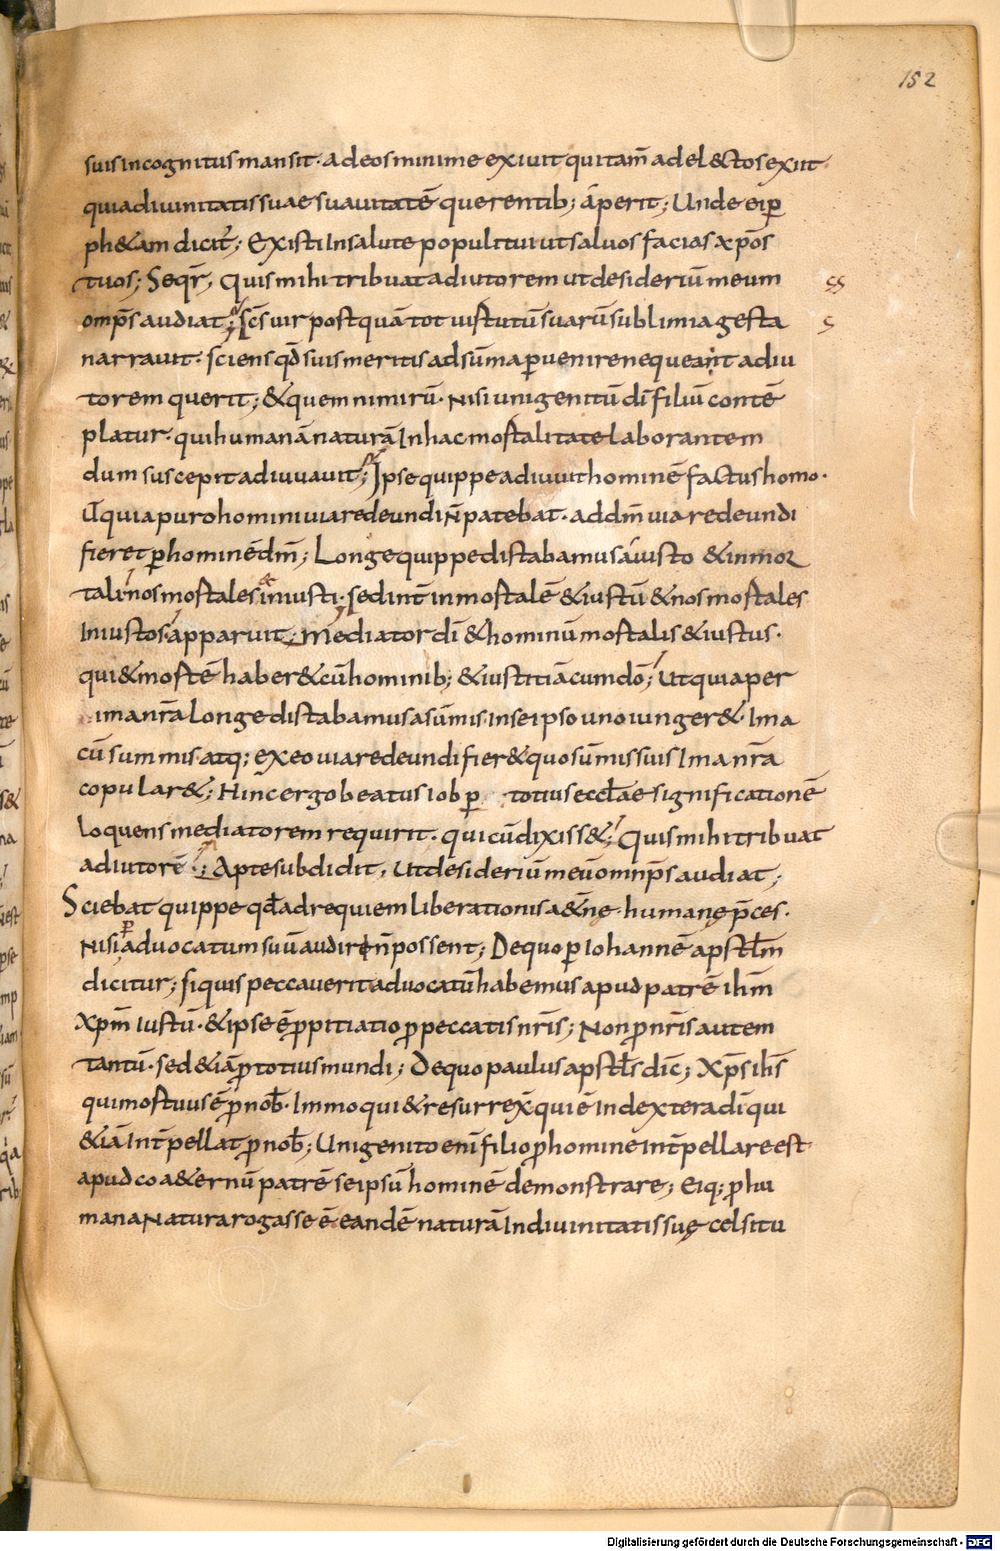 152
suis incognitus mansit· ad eos minime exivit qui tam̄ ad el&ctos exiit
quia divinitatis suae suavitatē querentib; aperit; Unde ei p̱
ph&am dicit̄; Existi in salute populi tui ut salvos facias xp̄os
tuos; Seqr̄, Quis mihi tribuat adiutorem ut desideriū meum
omp̄s audiat; Sc̄s vir postquā tot virtutū suarū sublimia gesta
narravit· sciens qd̄ suis meritis ad sūma p̱venire nequeant adiu
torem querit; &quem nimirū· Nisi unigenitū dī filiū contē
platur· qui humanā naturā In hac mortalitate laborantem
dum suscepit adiuvavit; Ipse quippe adiuvit hominē factus homo·
Ut̄ quia puro homini via redeundi n̄ patebat· ad dm̄ via redeundi
fieret p̱ hominē dm̄; Longe quippe distabamus a iusto &inmor
tali nos mortales & iniusti· Sed int̄ inmortalē &iustū &nos mortales
Iniustos· apparuit Mediator dī &hominū mortalis &iustus·
qui &mortē haber& cū hominib; &iustitiā cum dō; Ut quia per
ima nr̄a longe distabamus a sūmis· In se ipso uno iunger& Ima
cū summis· atq; ex eo via redeundi fier& quo sūmis suis Ima nr̄a
copular&; Hinc ergo beatus iob p̱ totius eccl̄ae significationē
loquens mediatorem requirit· qui cū dixiss& Quis mihi tribuat
adiutorē; Apte subdidit, Ut desideriū meū omnp̄s audiat;
Sciebat quippe qd̄ ad requiem liberationis a&nę· humanę p̄ces·
Nisi p̱ advocatum suū audiri n̄ possent; De quo p̱ Iohannē apstl̄m
dicitur; Si quis peccaverit advocatū habemus apud patrē ihm̄
Xpm̄ Iustū· &ipse ē p̱pitiatio p̱ peccatis nr̄is; Non p̱ nr̄is autem
tantū· sed &iā p̱ totius mundi; De quo paulus apstl̄s dic̄; Xp̄s ih̄s
qui mortuus ē p̱ nob̄· Immo qui &resurrex̄ qui ē In dextera dī qui
&iā Int̄pellat p̱ nob̄; Unigenito enī filio p̱ hominē Int̄pellare est
apud coa&ernū patrē se ipsū hominē demonstrare; Eiq; p̱ hu
mana Natura rogasse ē eandē naturā In divinitatis suę celsitu
Digitalisierung gefördert durch die Deutsche Forschungsgemeinschaft - DFG